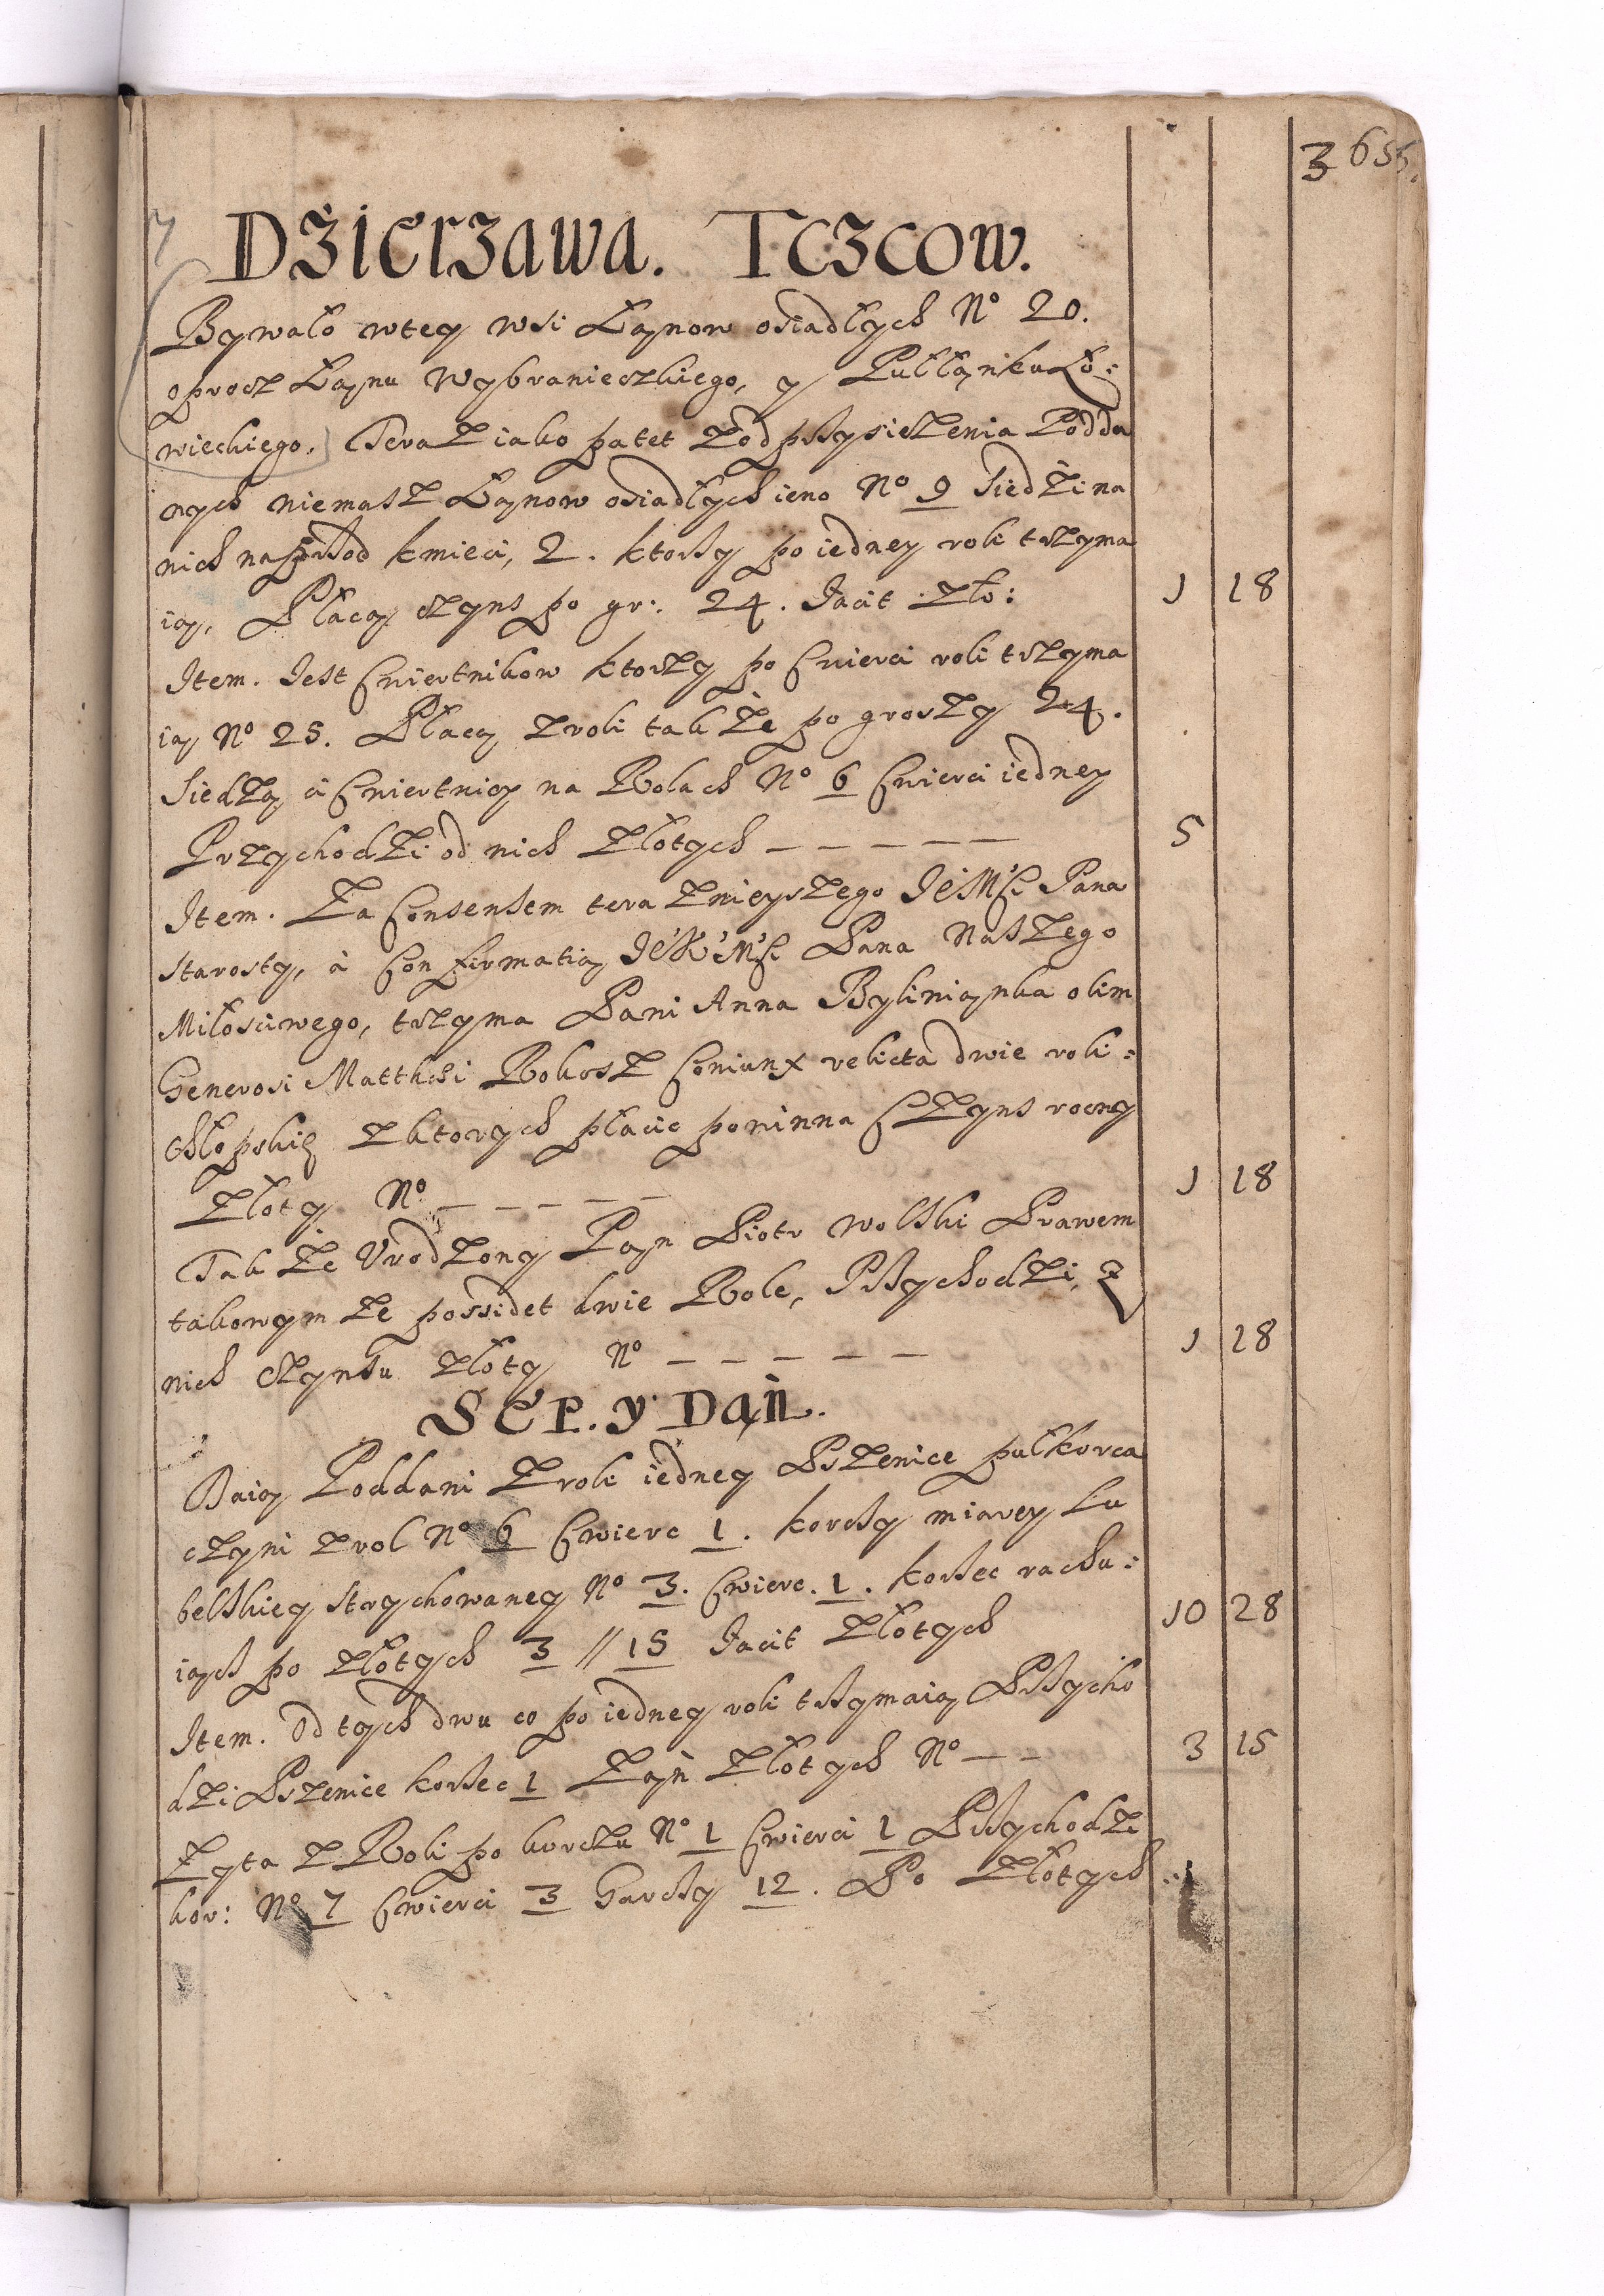 3 655.
Dzierzawa. Tczcow.
Bywało wtey wsi Łąnow osiadłych No 20.
oprocz Łąnu Wybranieczkiego, y Pułłąnku Ło:
wieckiego. Teraz iako patet zod przysiezenia Podda
nych niemasz Łąnow osiadłych ieno No 9 Siedzi na
nich naprzod kmieci, 2. ktorzy po iedney roli trzyma
ią, Płacą czyns po gr: 24. Facit zło: 1 18
Item. Jest Cwiertnikow ktorzy po Cwierci roli trzyma
ią No 25. Płacą z roli tak ze po groszy 24.
Siedzą ci Cwiertnicy na Rolach No 6 Cwierci iedney
Przychodzi od nich złotych — — — — — 5
Item. Za Consensem teraznieyszego JeMsci Pana
Starosty, à Confirmatią JeKMsci Pana Naszego
Miłosciwego, trzyma Pani Anna Byliniąnka olim
Generosi Matthæi Rokosz Coniunx relicta dwie roli:
chłopskie z ktorych płacic powinna Czyns roczny
złoty No — — — — — 1 18
Takze Vrodzony Pąn Piotr Wolski Prawem
takowym ze possidet dwie Role, Przychodzi, z
nich Czynsu złoty No — — — — — 1 18
SEP. y Dąń.
Daią Poddani z roli iedney Pszenice pułkorca
czyni z rol No 6 Cwierc 1. korczy miarey Lu
belskiey strychowaney No 3. Cwierc. 1. korzec rachu:
iąch po złotych 3 // 15 Facit złotych 10 28
Item. Od tych dwu co po iedney roli trzymaią Przycho
dzi Pszenice korzec 1 Zań złotych No — — 3 15
Zyta z Roli po korczu No 1 Cwierci 1 Przychodzi
kor: No 7 Cwierci 3 Garczy 12. Po złotych